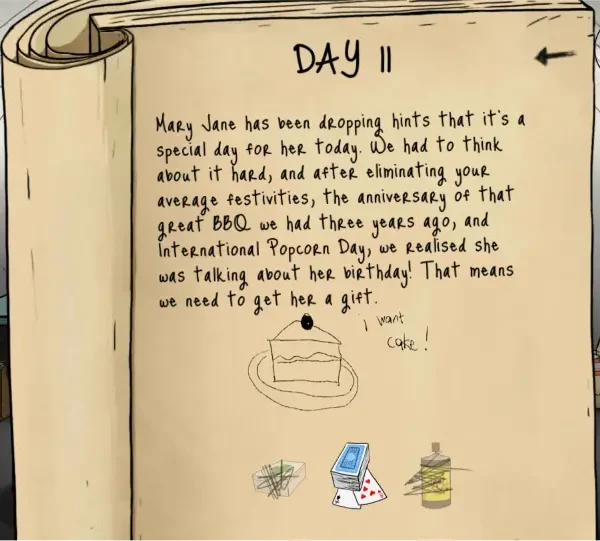 DAY 11
Mary Jane has been dropping hints that it's a
special day for her today. We had to think
about it hard, and after eliminating your
average festivities, the anniversary of that
great BBQ we had three years ago, and
International Popcorn Day, we realised she
was talking about her birthday! That means
we need to get her a gift.
i want
cake!